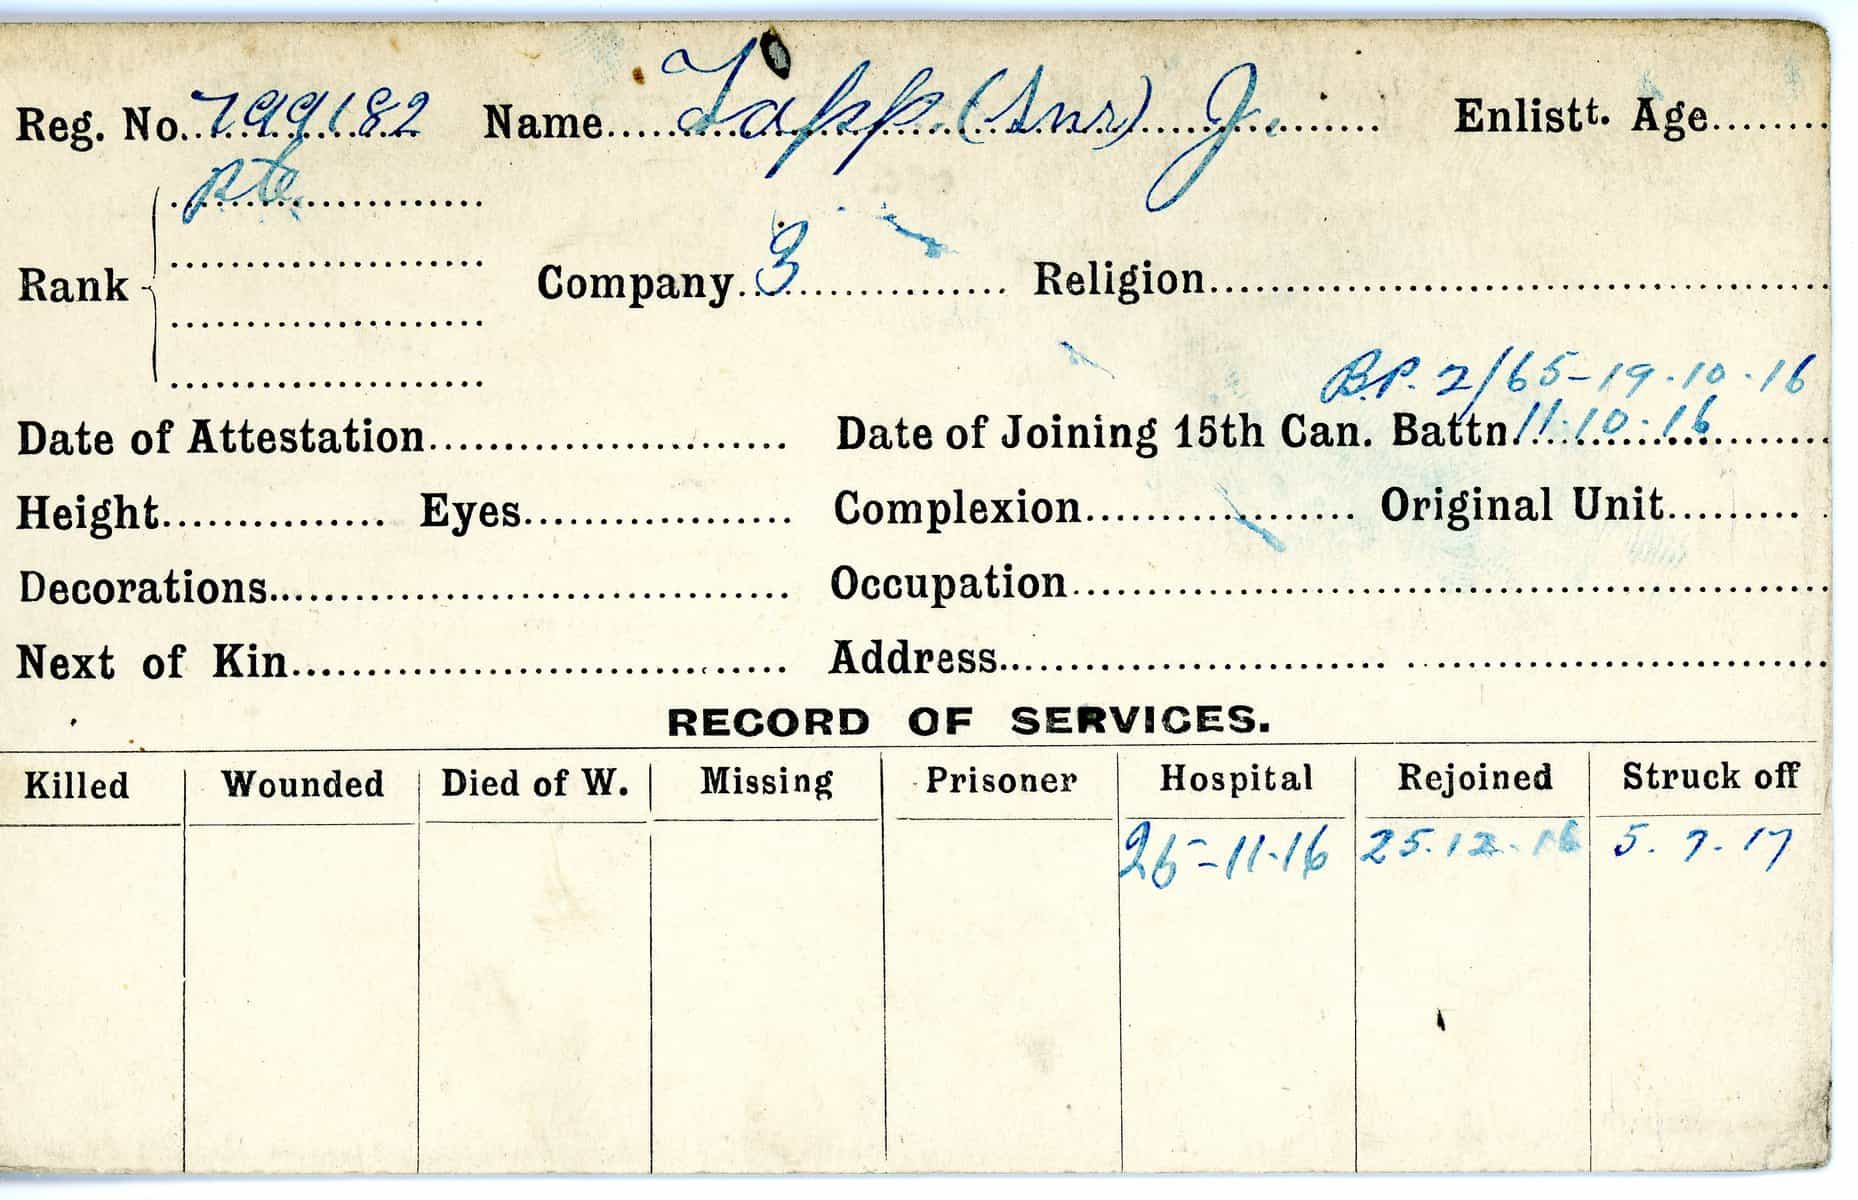 Reg. No. 799182 Name Tapp (Snr) J. Enlistt. Age
Pte.
Rank Company 3 Religion
B.P. 2/65-19.10.16
Date of Attestation Date of Joining 15th Can. Battn. 11.10.16
Height Eyes Complexion Original Unit
Decorations Occupation
Next of Kin Address
RECORD OF SERVICES.
Killed Wounded Died of W. Missing Prisoner Hospital Rejoined Struck off
25-11-16 25.12.16 5.7.17